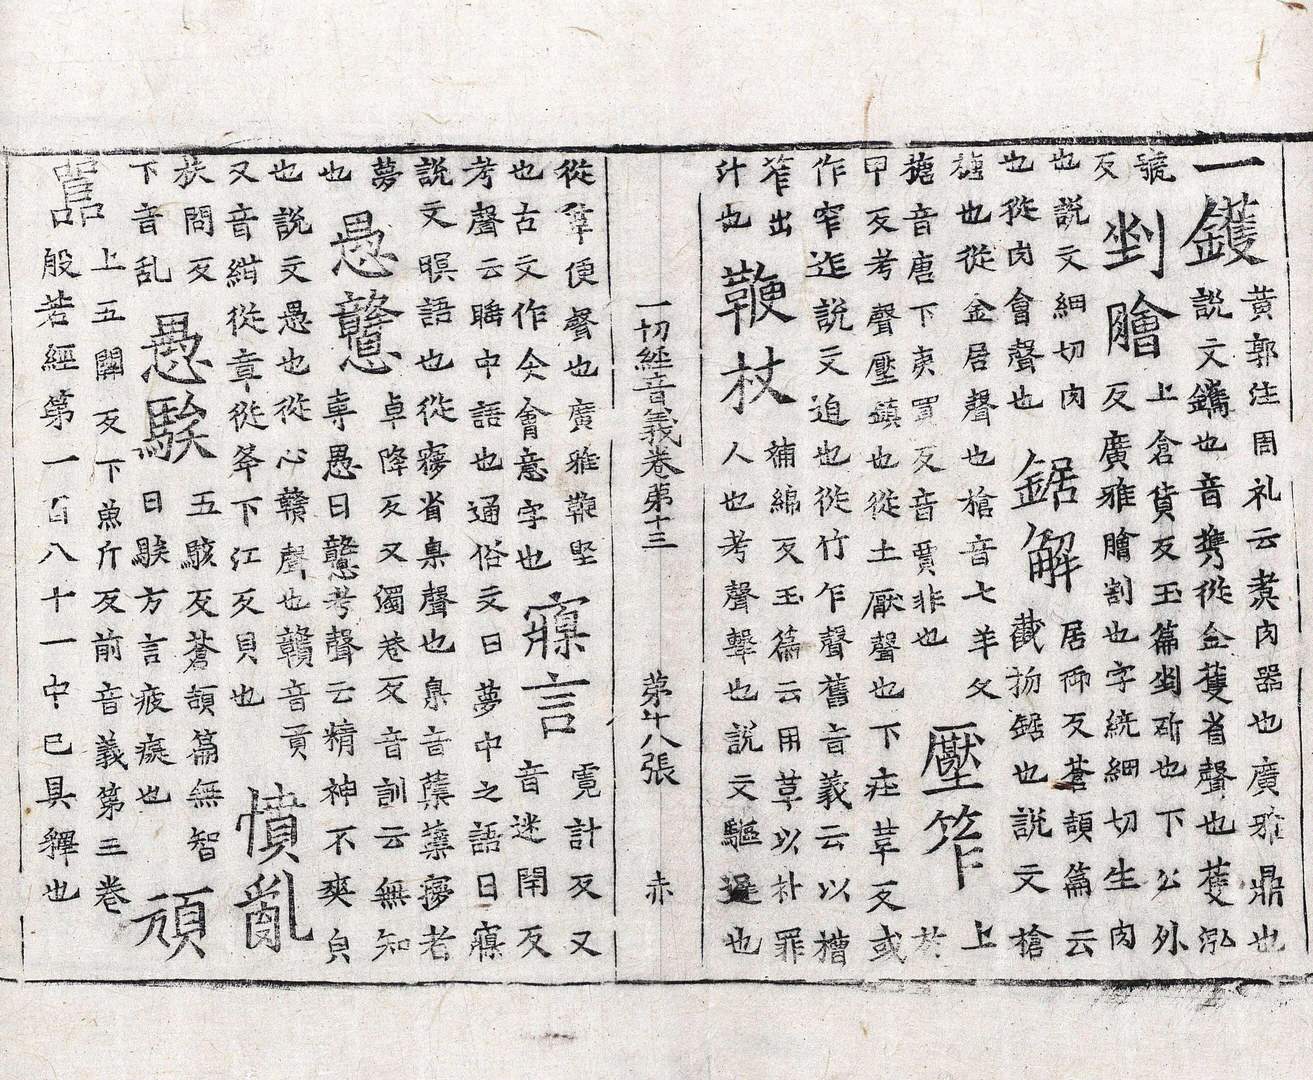 一鑊
黃郭注周礼云煑肉器也廣雅鼎也
說文鑴也音攜從金蒦省聲也蒦泓
號
反
剉膾
上倉貨反玉篇剉斫也下公外
反廣雅膾割也字統細切生肉
也說文細切肉
也從肉會聲也
鋸解
居御反蒼頡篇云
截物鋸也說文槍
搪也從金居聲也槍音七羊反
搪音唐下庚買反音賈非也
壓笮
上
於
甲反考聲壓鎮也從土厭聲也下庄革反或
作窄迮說文迫也從竹乍聲舊音義云以槽
笮出
汁也
鞭杖
補綿反玉篇云用革以朴罪
人也考聲擊也說文驅遲也
一切經音義卷第十三 第十八張 赤
從革便聲也廣雅鞭堅
也古文作㑒會意字也
寱言
霓計反又
音迷閉反
考聲云睡中語也通俗文曰夢中之語曰寱
說文瞑語也從㝱省臬聲也臬音櫱㝱者
夢
也
愚戇
卓降反又濁巷反音訓云無知
專愚曰戇考聲云精神不爽貞
也說文愚也從心贛聲也贛音貢
又音紺從章從夅下江反貝也
憒亂
扶問反
下音乱
愚騃
五駭反蒼頡篇無智
曰騃方言疲癡也
頑
嚚
上五關反下魚斤反前音義第三卷
般若經第一百八十一中已具釋也